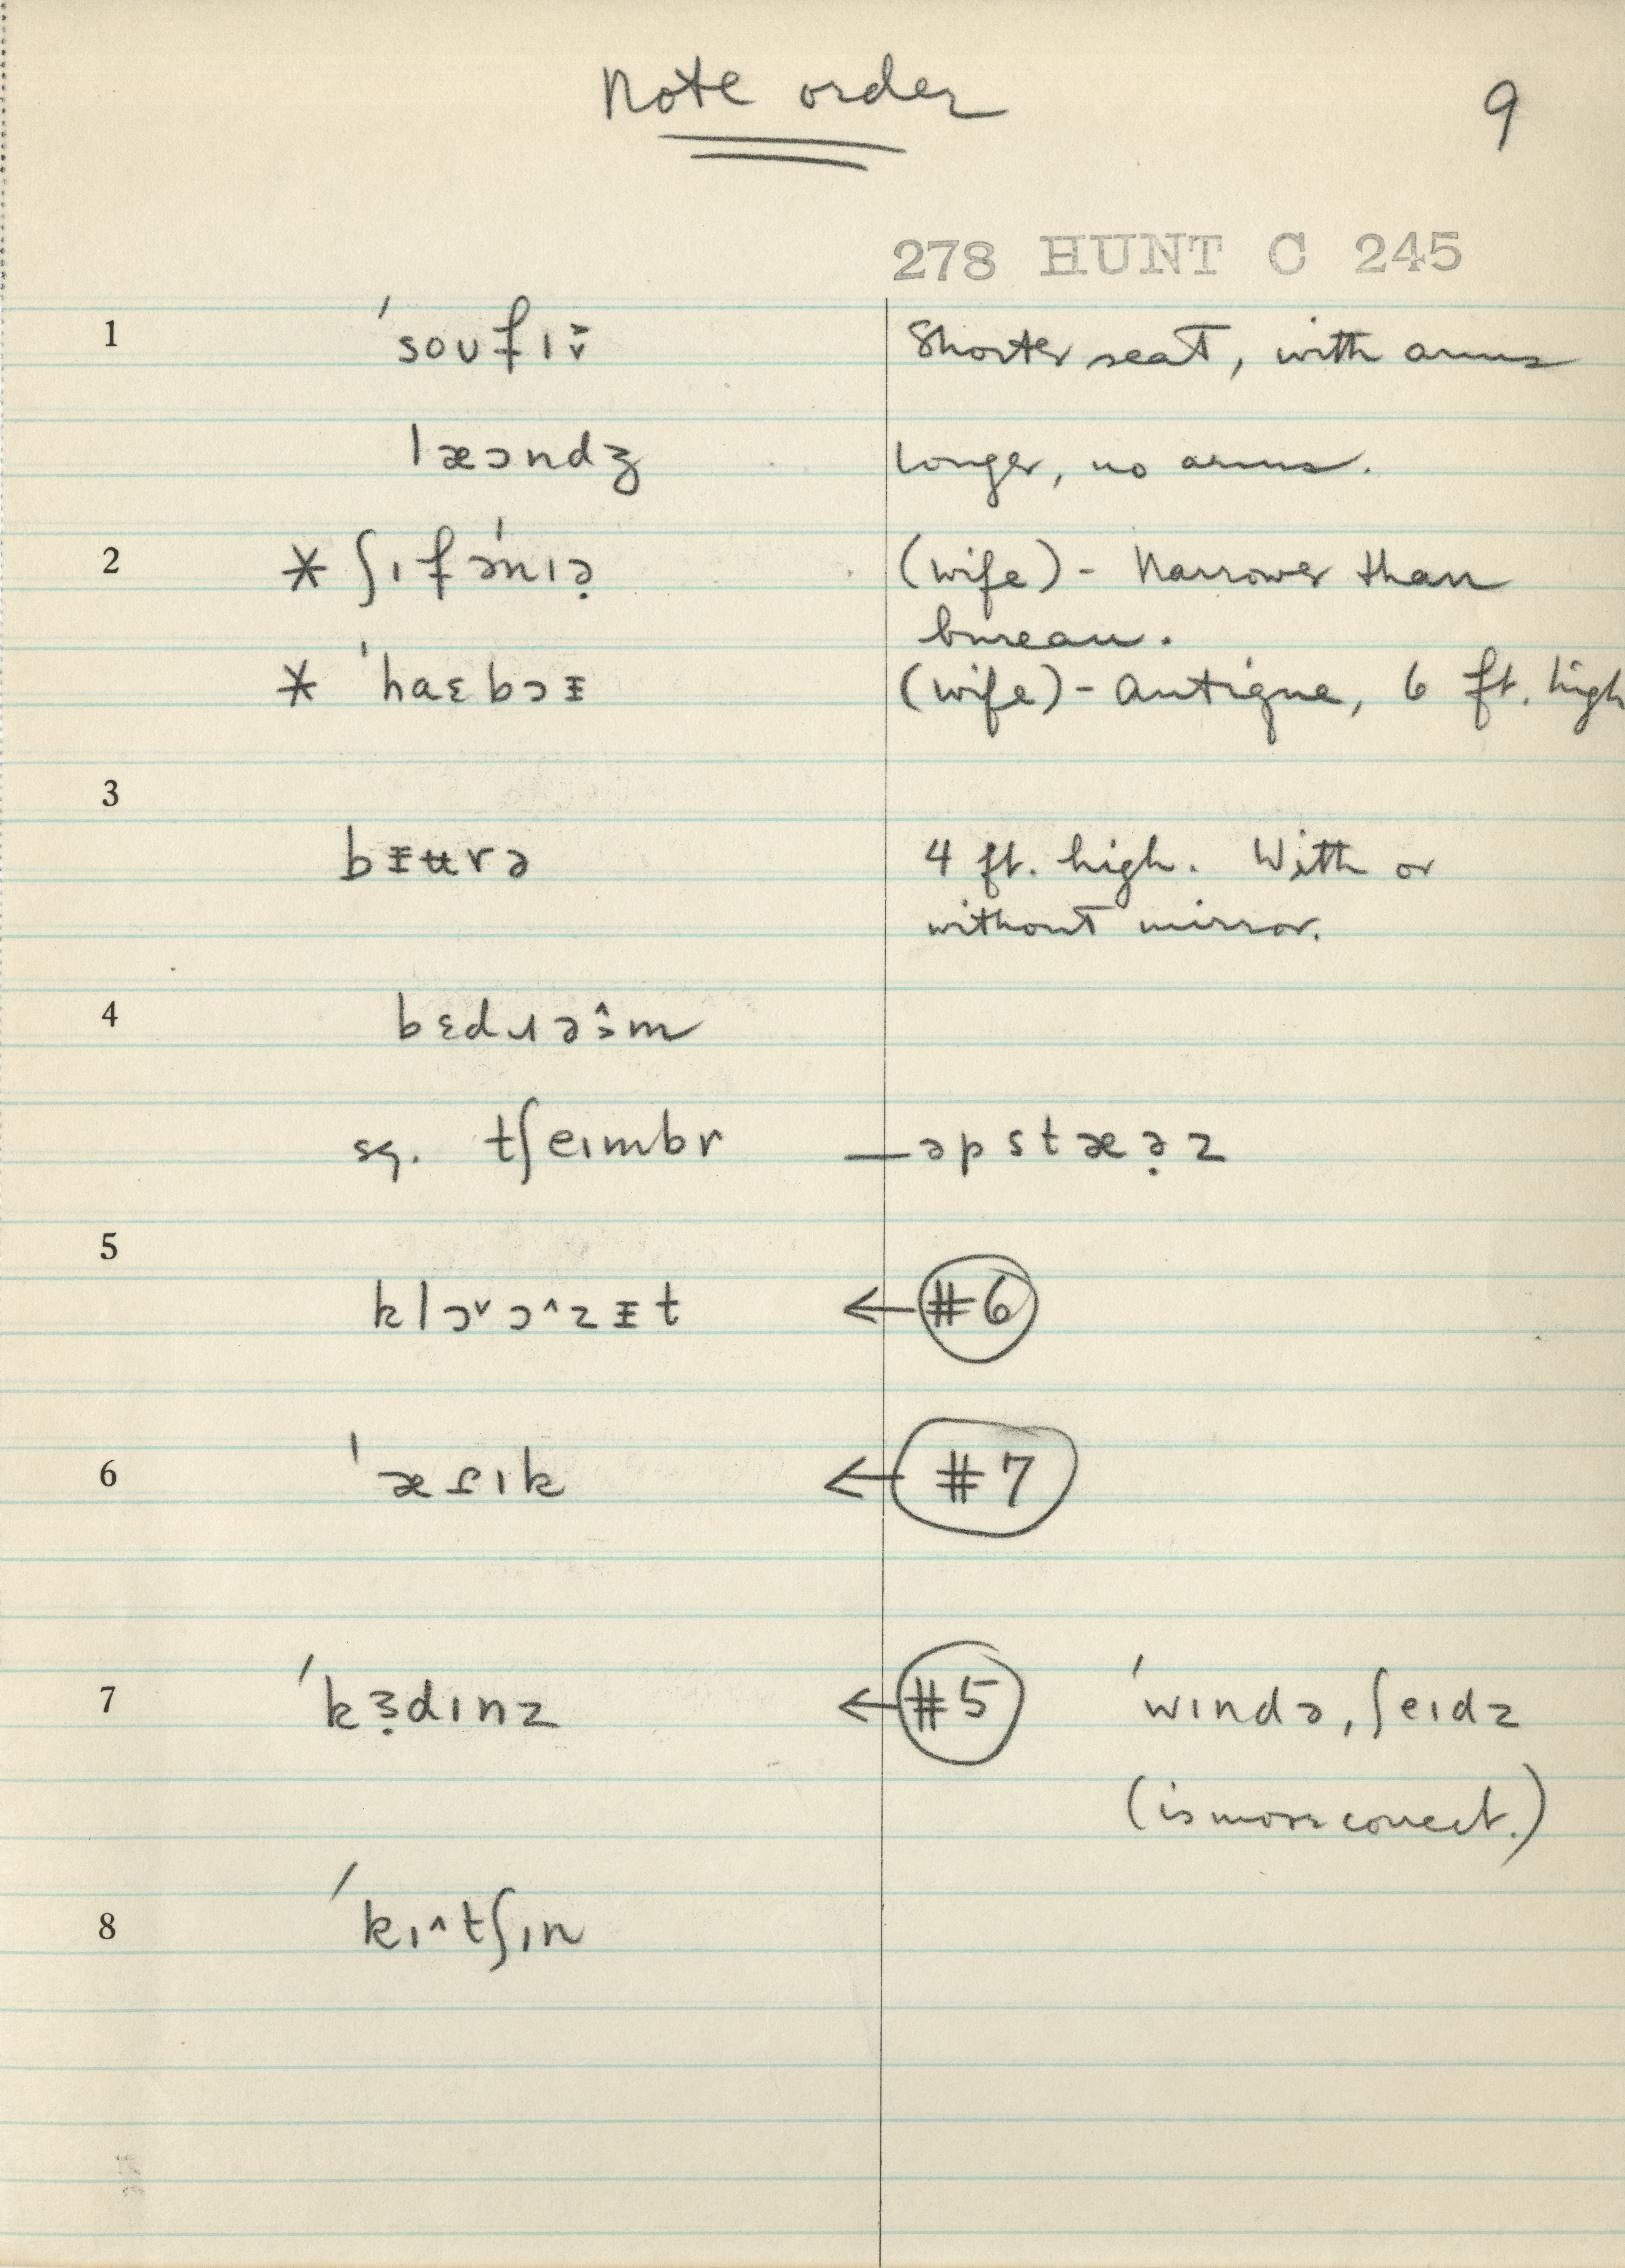 Note order
9
278 HUNT C 245
1 ˈsoʊfɪ Shorter seat, with arms
læɔndʒ longer, no arms.
2 * ʃɪfəˈnɪə̣ (wife) - Narrower than
bureau.
* ˈhaɛbɔᵻ (wife) - Antique, 6 ft. high
3
bᵻʉrə 4 ft. high. With or
without mirror.
4 bɛdɹəɔ̂m
sq. tʃeɪmbr — əpstæə̣z
5
klɔ˅ɔ˄zᵻt ← #6
6 ← #7
7 ˈkɜ̣dɪnz ← #5 ˈwɪndə,ʃeɪdz
(is more correct.)
8 ˈkɪ˄tʃɪn